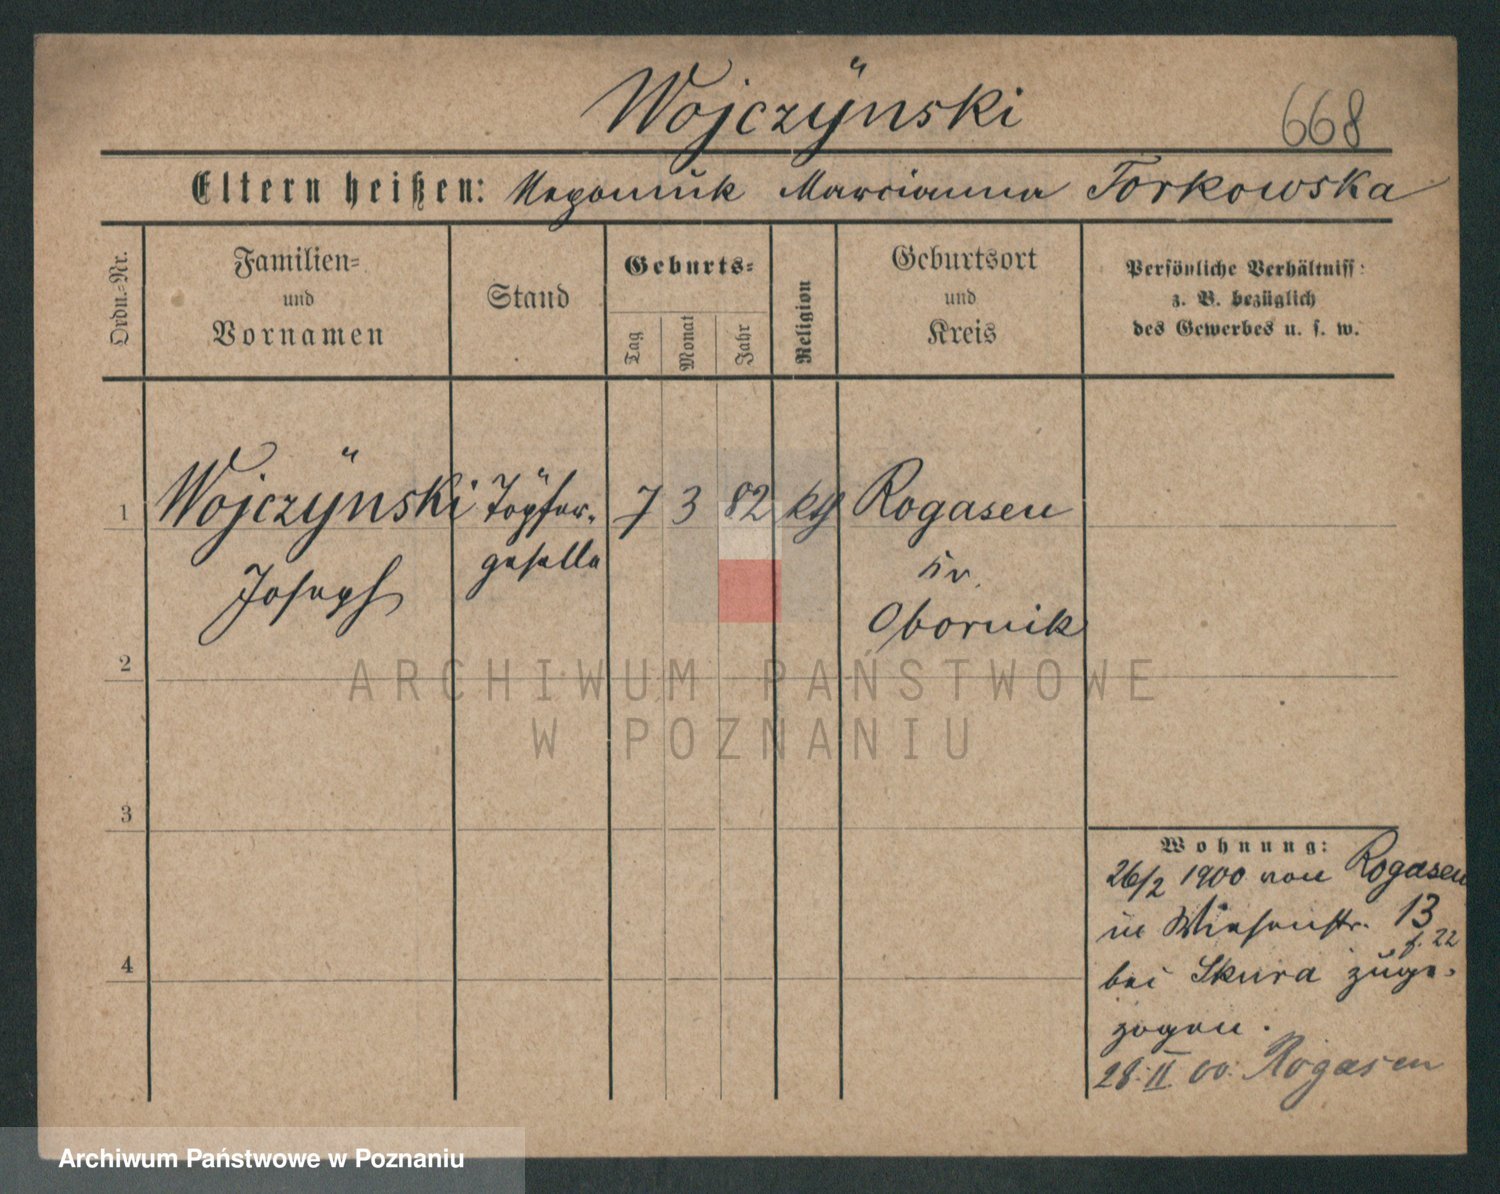 Wojczÿnski
668
Eltern heißen: Nepomuk Marcianna Torkowska
Ordn.-Nr.
Familien-
und
Vornamen
Stand
Geburts-
Tag
Monat
Jahr
Religion
Geburtsort
und
Kreis
Persönliche Verhältniss:
z. B. bezüglich
des Gewerbes u. s. w.
1 Wojczÿnski Töpfer- 7 3 82 kth Rogasen
geselle
Joseph
Kr.
Obornik
2
3
4
Wohnung:
26/2 1900 von Rogasen
in Wiesenstr. 13
f. 22
bei Skura zuge-
zogen.
28. II 00. Rogasen
ARCHIWUM PAŃSTWOWE
W POZNANIU
Archiwum Państwowe w Poznaniu